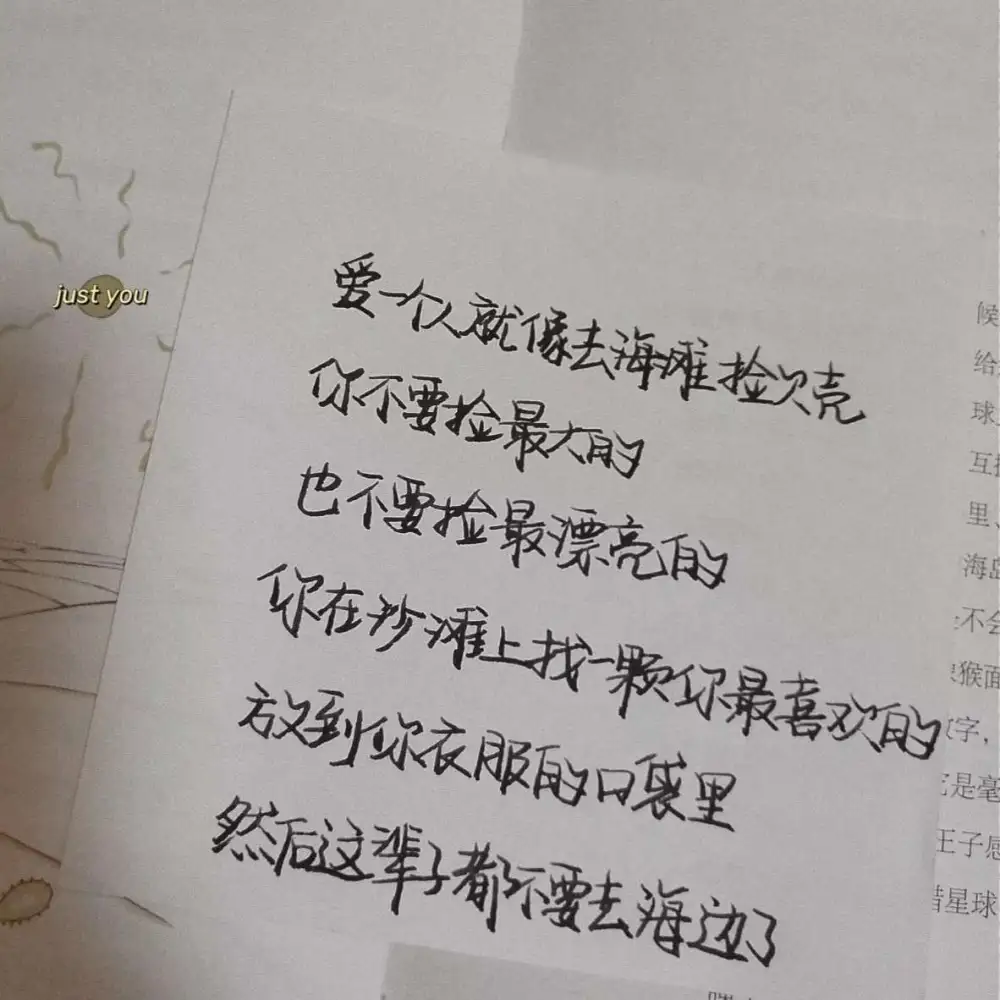 just you
爱一个人就像去海滩捡贝壳
你不要捡最大的
也不要捡最漂亮的
你在沙滩上找一颗你最喜欢的
放到你衣服的口袋里
然后这辈子都不要去海边了
候
给
球
互
里
海岛
不会
猴面
字，
是毫
王子感
猎星球